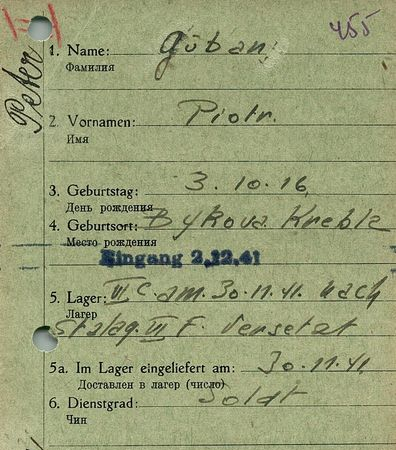 455
Peter
1. Name: Güban
Фамилия
2. Vornamen: Piotr.
Имя
3. Geburtstag: 3.10.16.
День рождения
4. Geburtsort: Bykova Kreble
Место рождения
Eingang 2.12.41
5. Lager: III C. am. 30.11.41. nach
Лагер
Stalag. III F. Versetzt
5a. Im Lager eingeliefert am: 30.11.41.
Доставлен в лагер (число)
6. Dienstgrad: Soldt
Чин